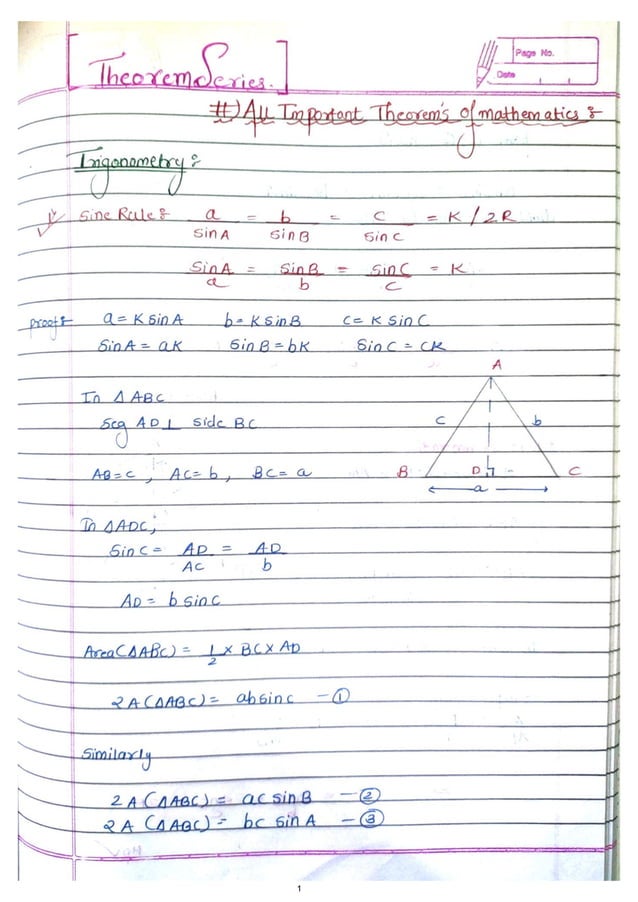 [TheoremSeries.]
Page No.
Date
#) All Important Theorem's of mathematics :-
Trigonometry :-
Sine Rule :- a/sinA = b/sinB = c/sinC = K / 2R
sinA/a = sinB/b = sinC/c = K
proof :- a = K sinA b = K sinB c = K sinC
sinA = aK sinB = bK sinC = cK
In △ABC
seg AD ⊥ side BC
AB = c , AC = b , BC = a
A
c b
B D C
a
In △ADC,
sinC = AD/AC = AD/b
AD = b sinc
Area(△ABC) = 1/2 × BC × AD
2A(△ABC) = absinc - ①
Similarly
2A(△ABC) = ac sinB - ②
2A(△ABC) = bc sinA - ③
1